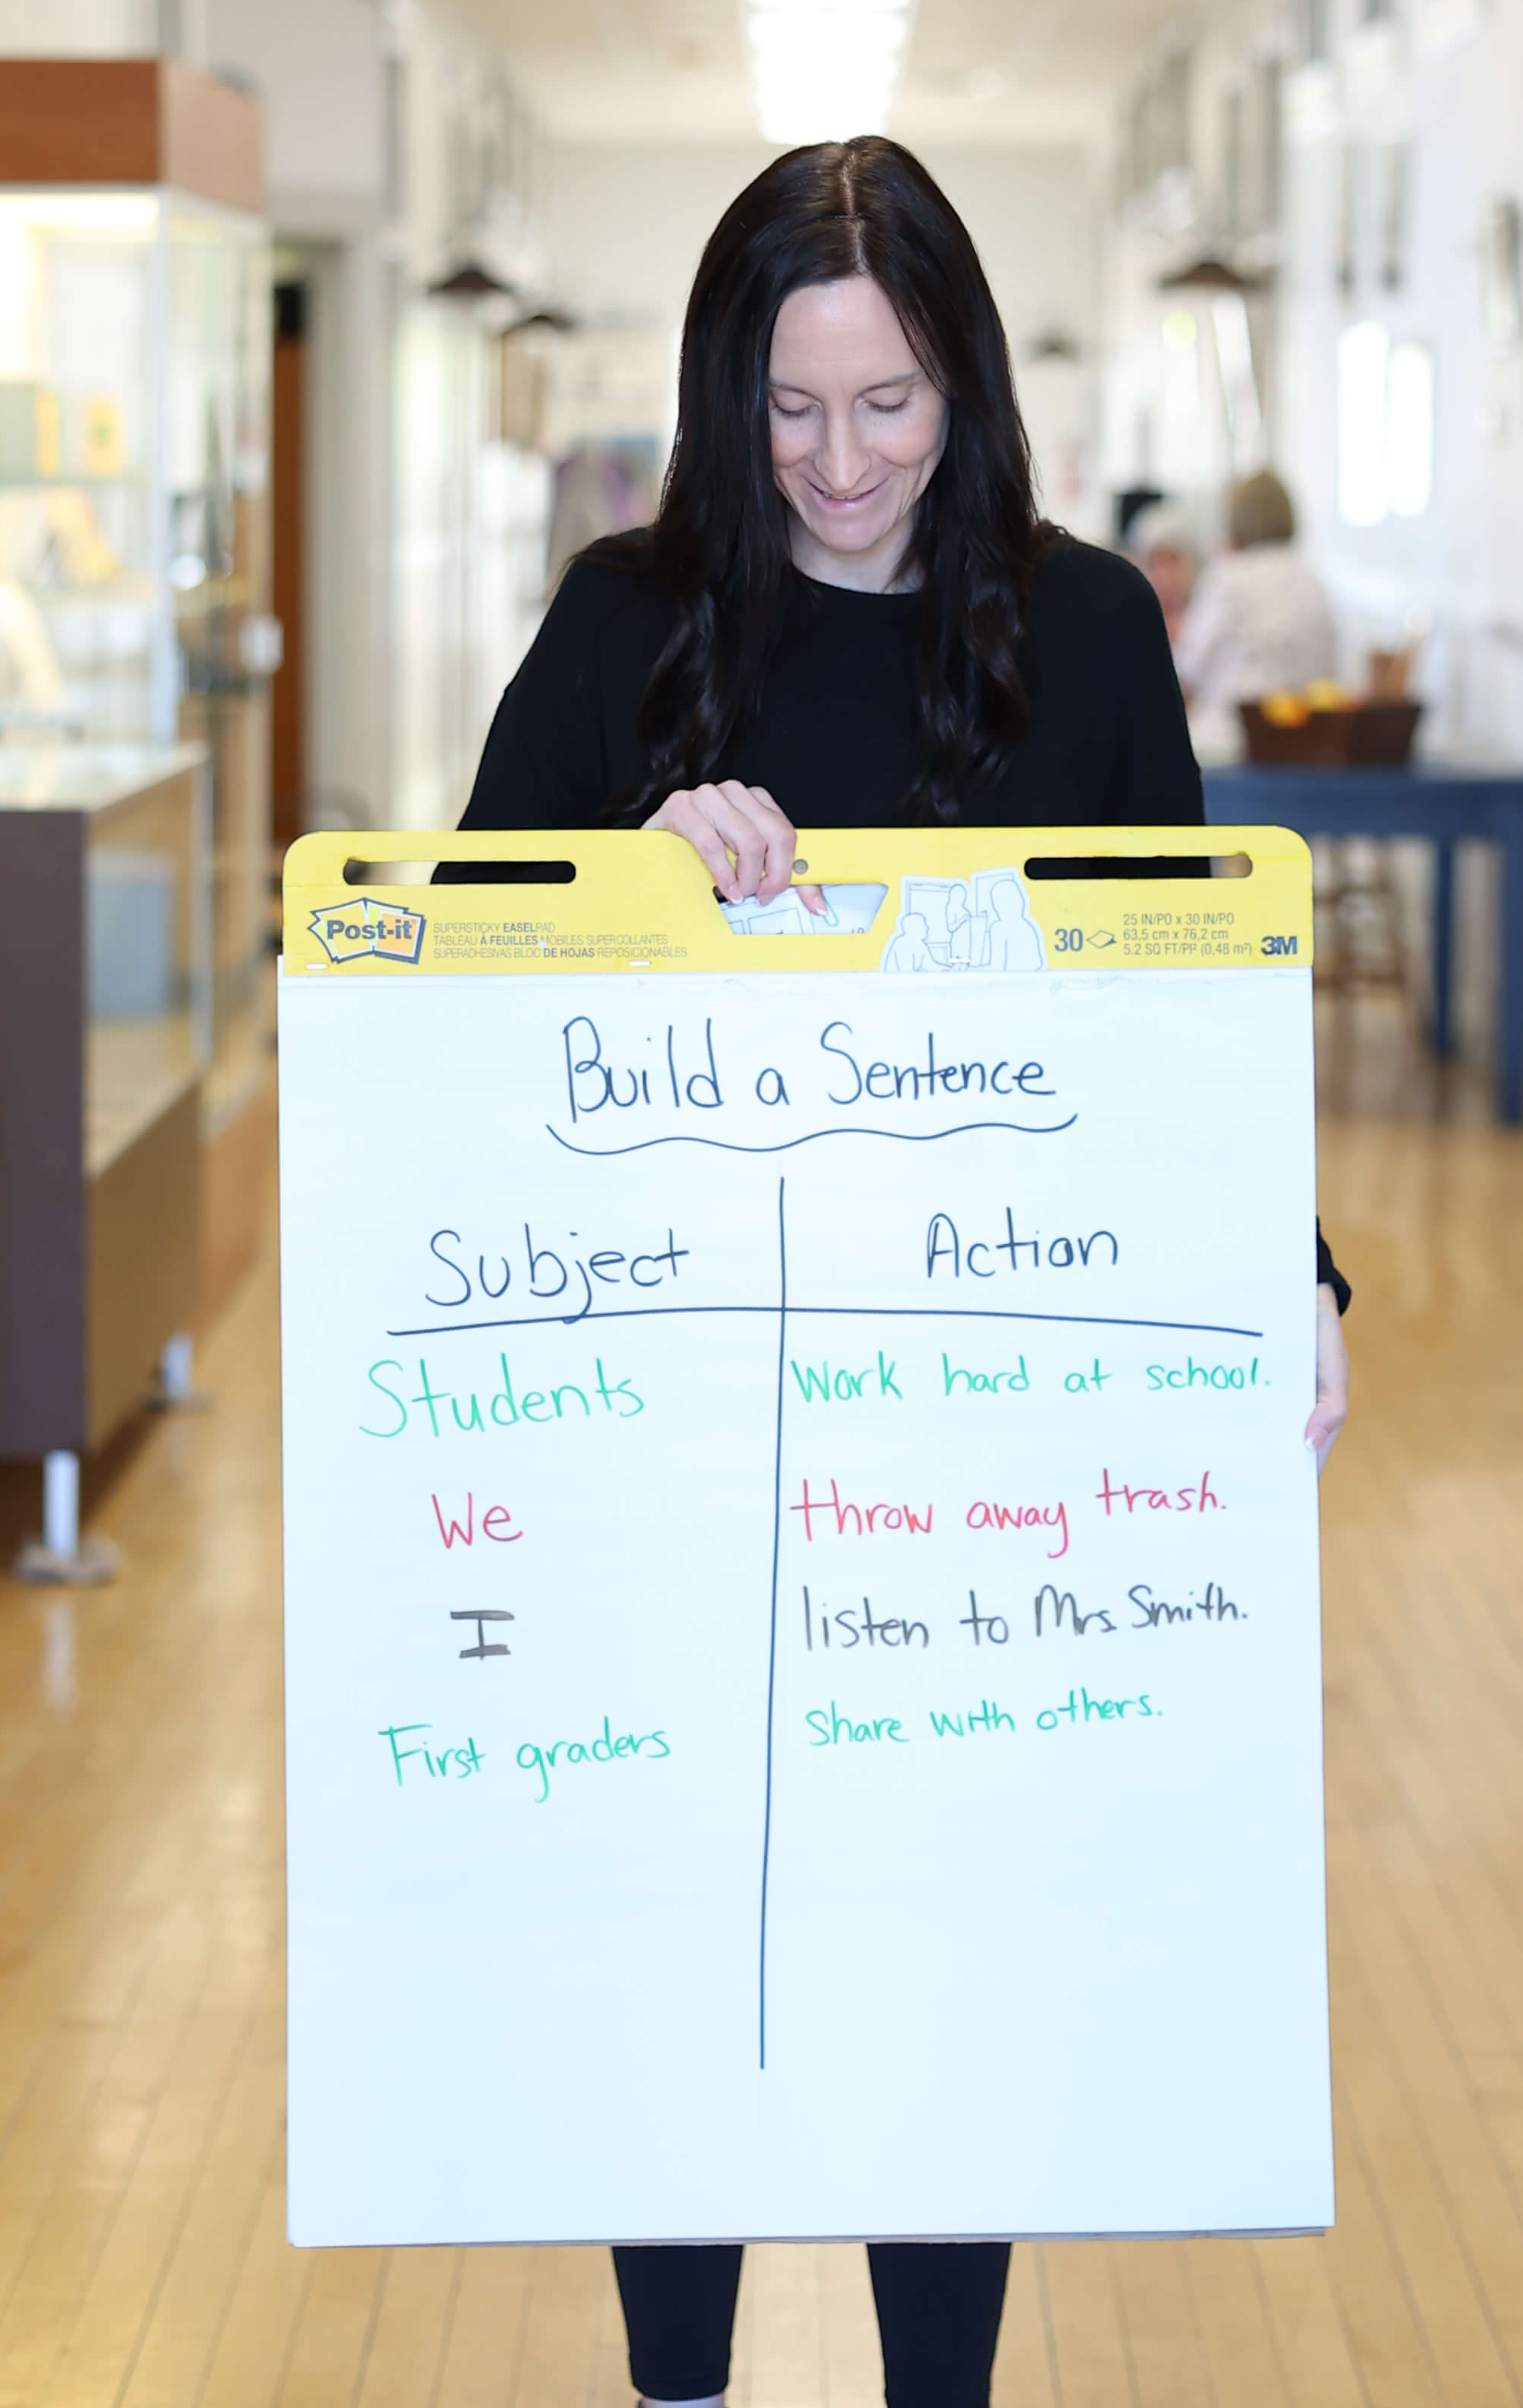 Post-it
SUPERSTICKY EASELPAD
TABLEAU À FEUILLES MOBILES SUPERCOLLANTES
SUPERADHESIVAS BLOC DE HOJAS REPOSICIONABLES
30
25 IN/PO x 30 IN/PO
63,5 cm x 76,2 cm
5.2 SQ FT/PP² (0,48 m²)
3M
Build a Sentence
Subject Action
Students work hard at school.
We throw away trash.
I listen to Mrs. Smith.
First graders share with others.